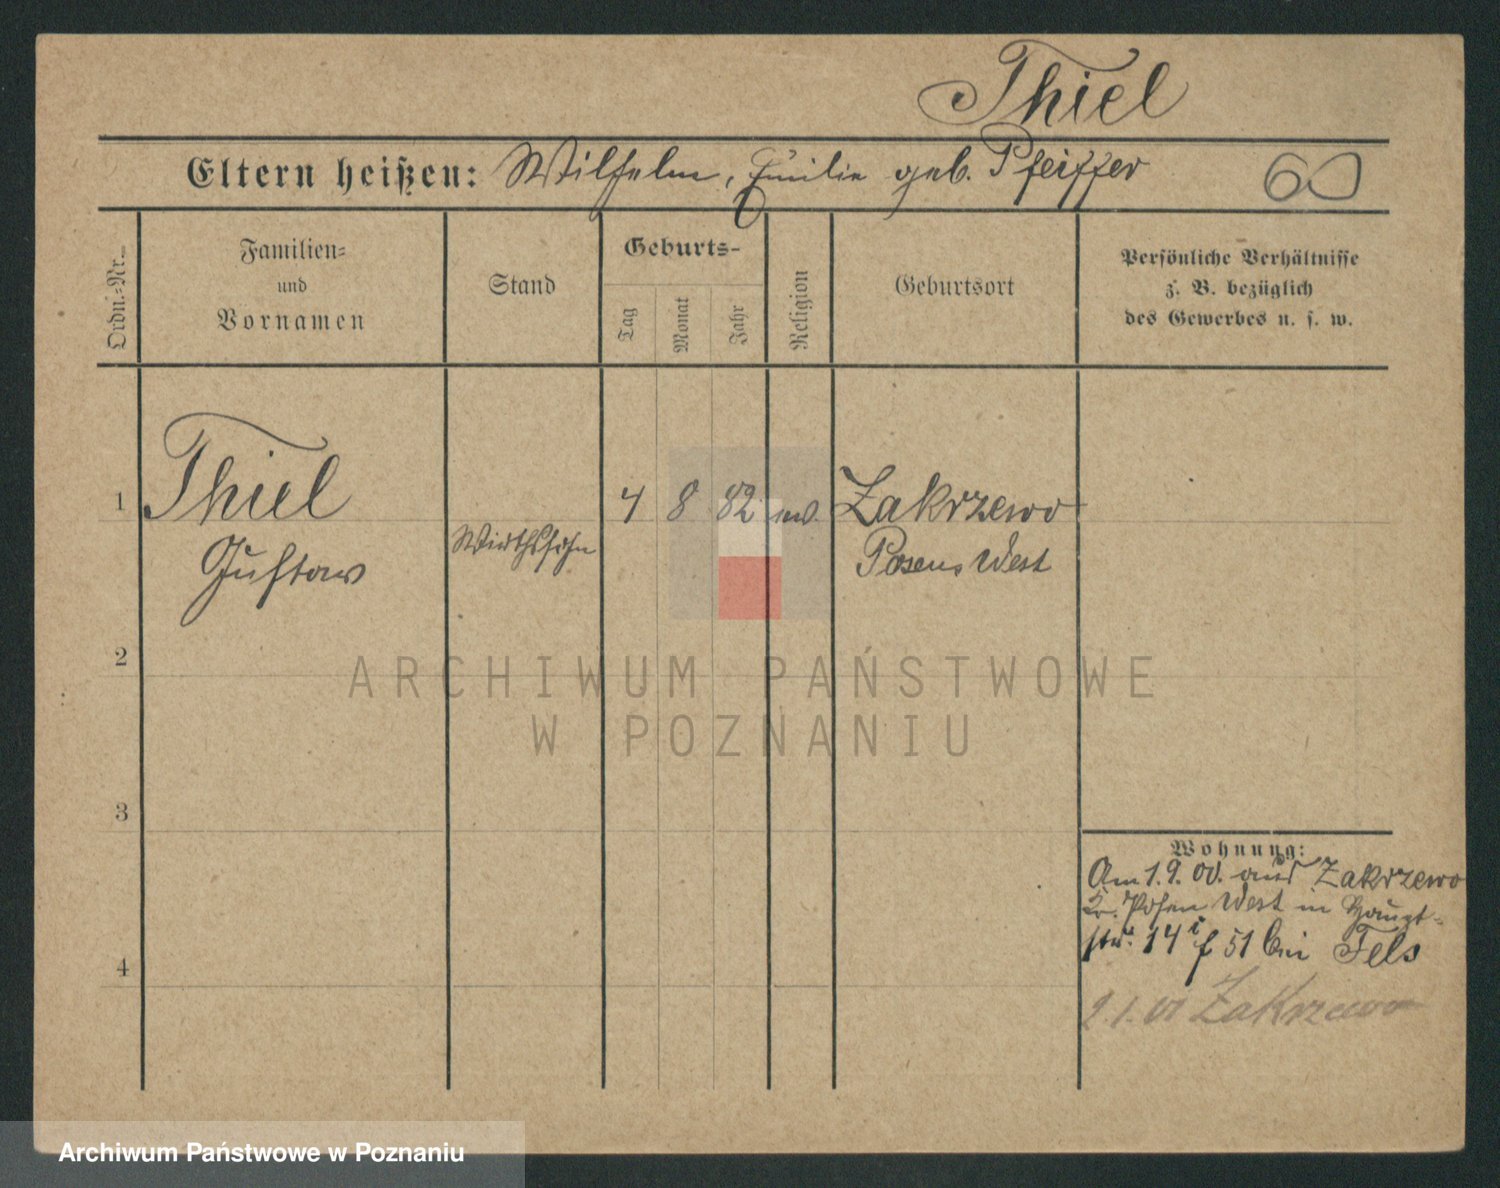 Thiel
Eltern heißen: Wilhelm, Emilie geb. Pfeiffer
60
Ordn.-Nr.
Familien-
und
Vornamen
Stand
Geburts-
Tag
Monat
Jahr
Religion
Geburtsort
Persönliche Verhältnisse
z. B. bezüglich
des Gewerbes u. s. w.
1 Thiel 4 8 82 ev. Zakrzewo
Gustav Wirthssohn Posen West
2
3
4
Wohnung:
Am 1.9.00. aus Zakrzewo
Kr. Posen West in Haupt-
str. 14 51 bei Fels
2.1.01 Zakrzewo
ARCHIWUM PAŃSTWOWE
W POZNANIU
Archiwum Państwowe w Poznaniu